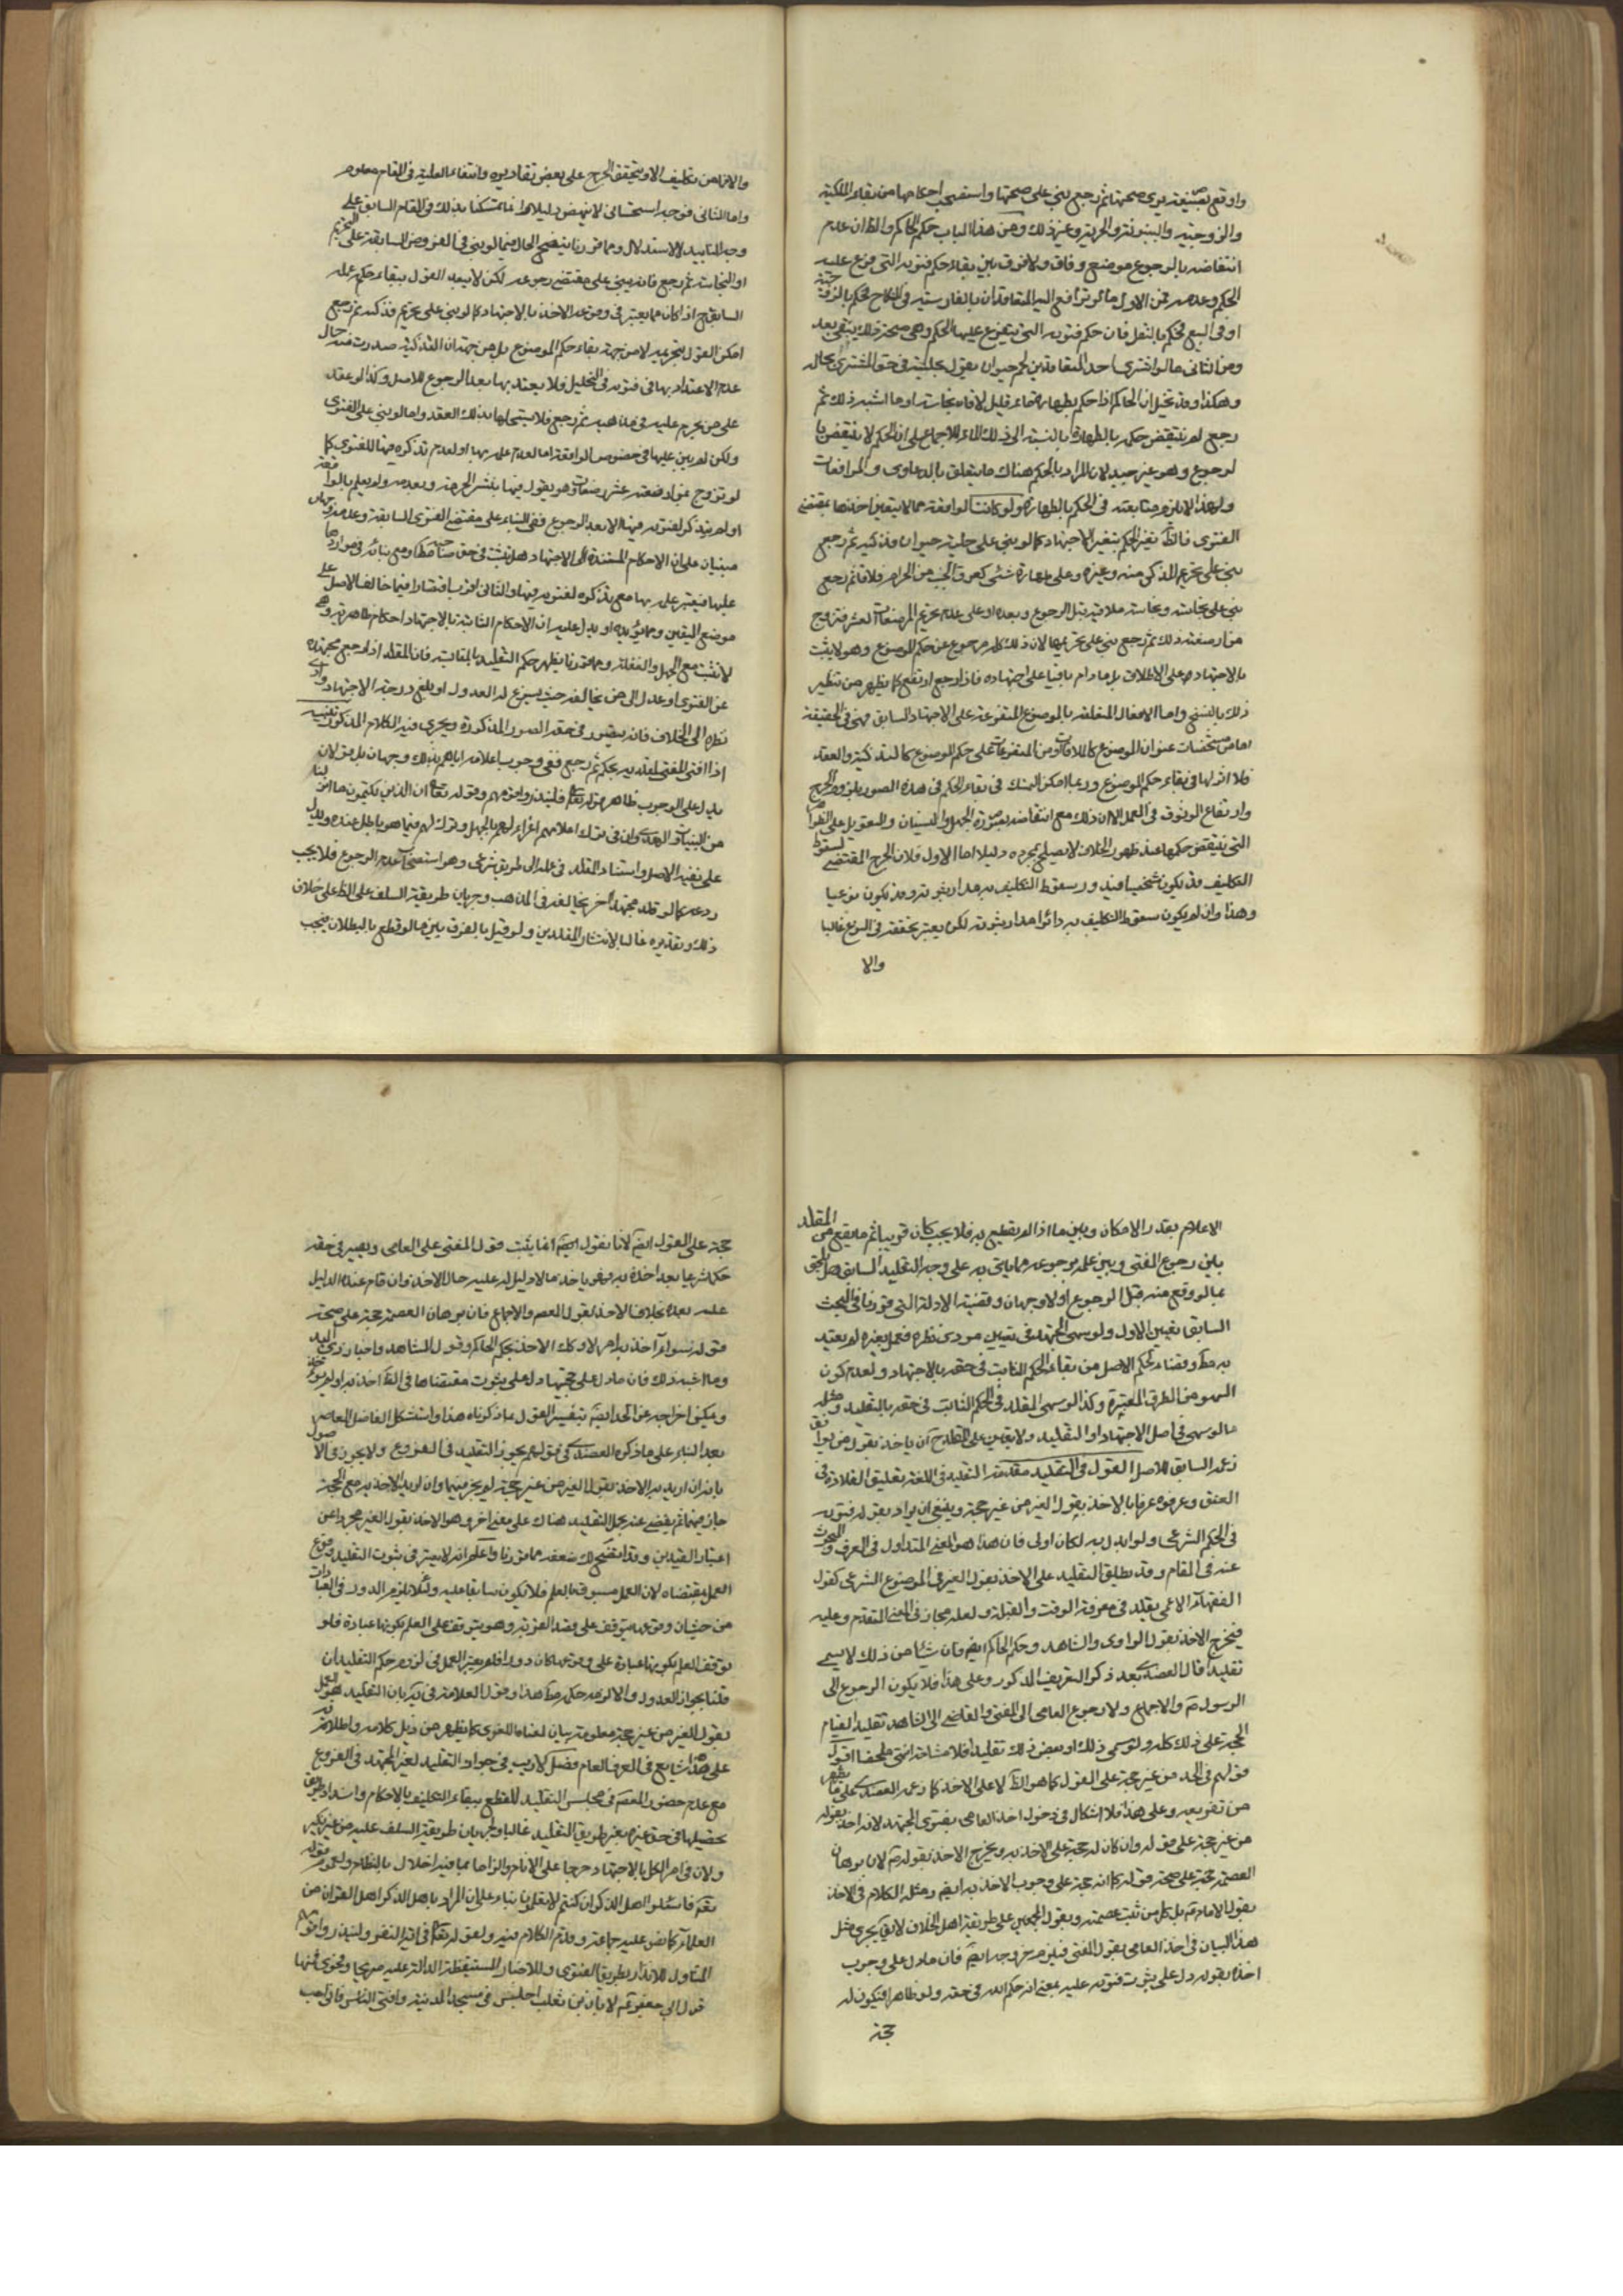 واوقع بصيغة يرى صحتها ثم رجع بنى على صحتها واستصحب احكامها من بقاء الملكية
والزوجية والبينونة والحرية وغير ذلك ومن هذا الباب حكم الحاكم والظ ان عدم
انتقاضه بالرجوع موضع وفاق ولا فرق بين بقاء حكم فتويه التى فرع عليه
الحكم وعدمه فمن الاول ما لو ترافع اليه المتعاقدان بالفارسية فى النكاح فحكم بالزوجية
او فى البيع فحكم بالنقل فان حكم فتويه التى يتفرع عليها الحكم وهى صحة ذلك يبقى بعد
ومن الثانى ما لو اشترى احد المتعاقدين لحم حيوان بقول بحليته فى حق المشترى بحاله
وهكذا وقد تخيل ان الحاكم اذا حكم بطهارة ماء قليل لاقاه نجاسة او ما اشبه ذلك ثم
رجع لم ينتقض حكمه بالطهارة بالنسبة الى ذلك الماء للاجماع على ان الحكم لا ينتقض با
لرجوع وهو غير جيد لان المراد بالحكم هناك ما يتعلق بالدعاوى والمرافعات
ولهذا لا يلزم متابعته فى الحكم بالطهارة ولو كانت الواقعة مما لا يتعين اخذها بمقتضى
الفتوى فالظ تغير الحكم بتغير الاجتهاد كما لو بنى على حلية حيوان فذكيه ثم رجع
بنى على تحريم المذكى منه وغيره وعلى طهارة شئى كعرق الجنب من الحرام فلاقاه ثم رجع
بنى على نجاسته ونجاسة ملاقيه قبل الرجوع وبعده او على عدم تحريم الرضعات العشر فتزوج
من ارضعته ذلك ثم رجع بنى على تحريمها لان ذلك كله رجوع عن حكم الموضوع وهو لا يثبت
بالاجتهاد على الاطلاق بل ما دام باقيا على اجتهاده فاذا رجع ارتفع كما يظهر من تنظير
ذلك بالنسخ واما الافعال المتعلقة بالموضوع المتفرعة على الاجتهاد السابق فهى فى الحقيقة
اما من مشخصات عنوان الموضوع كالملاقات او من المتفرعات على حكم الموضوع كالتذكية والعقد
فلا اثر لها فى بقاء حكم الموضوع وربما امكن التمسك فى بقاء الحكم فى هذه الصور بلزوم الحرج
وارتفاع الوثوق فى العمل الا ان ذلك مع انتقاضه بصورة الجهل والنسيان والتعويل على الظواهر
التى ينتقض حكمها عند ظهور الخلاف لا يصلح بمجرده دليلا اما الاول فلان الحرج المقتضى لسقوط
التكليف قد يكون شخصيا فيدور سقوط التكليف به مدار ثبوته وقد يكون نوعيا
وهذا وان لم يكون سقوط التكليف به دائرا مدار ثبوته لكن يعتبر تحققه فى النوع غالبا
والا
والا فما من تكليف الا ويتحقق الحرج على بعض تقاديره وانتفاء الغلبة فى المقام معلوم
واما الثانى فوجه استحسانى لا ينهض دليلا وانما تمسكنا بذلك فى المقام السابق على
وجه التاييد لا الاستدلال ومما قررنا يتضح الحال فيما لو بنى فى الفروض السابقة على التحريم
او النجاسة ثم رجع فانه يبنى على مقتضى رجوعه لكن لا يبعد القول ببقاء حكم عمله
السابق ح اذا كان مما يعتبر فى وقوعه الاخذ بالاجتهاد كما لو بنى على تحريم فذكيه ثم رجع
امكن القول بتحريمه لا من جهة بقاء حكم الموضوع بل من جهة ان التذكية صدرت منه حال
عدم الاعتداد بها فى فتويه فى التحليل فلا يعتد بها بعد الرجوع للاصل وكذا لو عقد
على من يحرم عليه فى مذهبه ثم رجع فلا يستبيحها بذلك العقد واما لو بنى على الفتوى
ولكن لم يبن عليها فى خصوص الواقعة اما لعدم علمه بها او لعدم تذكره فيها للفتوى كما
لو تزوج بمن ارضعته عشر رضعات وهو يقول فيها بنشر الحرمة وبعدمه ولم يعلم بالواقعة
او لم يتذكر لفتويه فيها الا بعد الرجوع ففى البناء على مقتضى الفتوى السابقة وعدمه وجهان
مبنيان على ان الاحكام المستندة الى الاجتهاد هل يثبت فى حق صاحبه مط او مع بنائه فى مواردها
عليها فيعتبر علمه بها مع تذكره لفتويه فيها والثانى اقرب اقتصارا فيما خالف الاصل على
موضع اليقين ومما يؤيده او يدل عليه ان الاحكام الثابتة بالاجتهاد احكام ظاهرية وهى
لا تثبت مع الجهل والغفلة ومما قررنا يظهر حكم التقليد بالمقايسة فان المقلد اذا رجع مجتهده
عن الفتوى او عدل الى من يخالفه حيث يسوغ له العدول او بلغ درجة الاجتهاد وادى
نظره الى الخلاف فانه يتصور فى حقه الصور المذكورة ويجرى فيه الكلام المذكور تنبيه
اذا افتى المفتى لمقلديه بحكم ثم رجع ففى وجوب اعلامه اياهم بذلك وجهان بل قولان
يدل على الوجوب ظاهر قوله تعالى فلينذروا قومهم وقوله تعالى ان الذين يكتمون ما انزلنا
من البينات والهدى وان فى ترك اعلامهم اغراء لهم بالجهل وترك لهم فيما هو باطل عنده ويدل
على نفيه الاصل واستناد المقلد فى عمله الى طريق شرعى وهو استصحاب عدم الرجوع فلا يجب
ردعه كما لو قلد مجتهدا اخر يخالفه فى المذهب وجريان طريقة السلف على الظ على خلاف
ذلك وتعذره غالبا لانتشار المقلدين ولو قيل بالفرق بين ما لو قطع بالبطلان فيجب
الاعلام بقدر الامكان وبين ما اذا لم يقطع به فلا يجب كان قريبا ثم ما يقع من المقلد
بين رجوع المفتى وبين علمه برجوعه مما ياتى به على وجه التقليد السابق هل يلحق
بما لو وقع منه قبل الرجوع او لا وجهان وقضية الادلة التى قررنا فى البحث
السابق تعيين الاول ولو سهى المجتهد فى تعيين مودى نظره فعمل بغيره لم يعتد
به مط وقضاء لحكم الاصل من بقاء الحكم الثابت فى حقه بالاجتهاد ولعدم كون
السهو من الطرق المعتبرة وكذا لو سهى المقلد فى الحكم الثابت فى حقه بالتقليد ومثله
ما لو سهى فى اصل الاجتهاد او التقليد ولا يتعين على المقلد ح ان ياخذ بقول من يوافق
زعمه السابق للاصل القول فى التقليد مقدمة التقليد فى اللغة تعليق القلادة فى
العنق وعرفوه عرفا بالاخذ بقول الغير من غير حجة وينبغى ان يراد بقوله فتويه
فى الحكم الشرعى ولو ابدل به لكان اولى فان هذا هو المعنى المتداول فى العرف والمبحوث
عنه فى المقام وقد يطلق التقليد على الاخذ بقول الغير فى الموضوع الشرعى كقول
الفقهاء الاعمى يقلد فى معرفة الوقت والقبلة ولعله مجاز فى المعنى المتقدم وعليه
فيخرج الاخذ بقول الراوى والشاهد وحكم الحاكم ايضم فان شئا من ذلك لا يسمى
تقليدا قال العضدى بعد ذكر التعريف المذكور وعلى هذا فلا يكون الرجوع الى
الرسول ص والاجماع ولا رجوع العامى الى المفتى والقاضى الى الشاهد تقليد القيام
الحجة على ذلك كله ولو سمى ذلك او بعض ذلك تقليدا فلا مشاحة انتهى ملخصا اقول
قولهم فى الحد من غير حجة على القول كما هو الظ لا على الاخذ كما زعمه العضدى على ما يظهر
من تفريعه وعلى هذا فلا اشكال فى دخول اخذ العامى بفتوى المجتهد لانه اخذ بقوله
من غير حجة على قوله وان كان له حجة على الاخذ به ويخرج الاخذ بقوله ص لان برهان
العصمة حجة على صحة قوله كما انه حجة على وجوب الاخذ به ايضم ومثله الكلام فى الاخذ
بقول الامام ع بل كل من ثبت عصمته وبقول المجمعين على طريقة اهل الخلاف لا يق يجرى مثل
هذا البيان فى اخذ العامى بقول المفتى فيلزم خروجه ايضم فان ما دل على وجوب
اخذه بقوله دل على ثبوت فتويه عليه بمعنى انه حكم الله فى حقه ولو ظاهرا فيكون له
حجة
حجة على القول ايضم لانا نقول ايضم انما يثبت قول المفتى على العامى ويصير فى حقه
حكما شرعيا بعد اخذه به فهو ياخذ ما لا دليل له عليه حال الاخذ وان قام عنده الدليل
عليه بعده بخلاف الاخذ بقول المعصوم والاجماع فان برهان العصمة حجة على صحة
قوله سواء اخذ به ام لا وكك الاخذ بحكم الحاكم وقول الشاهد واخبار ذى اليد
وما اشبه ذلك فان ما دل على حجيتها دل على ثبوت مقتضاها فى الظ اخذ به او لم يوخذ
ويمكن اخراجه عن الحد ايضم بتفسير القول بما ذكرناه هذا واستشكل الفاضل المعاصر
بعد البناء على ما ذكره العضدى فى قولهم يجوز التقليد فى الفروع ولا يجوز فى الاصول
بانه ان اريد به الاخذ بقول الغير من غير حجة لم يجز فيهما وان اريد الاخذ به مع الحجة
جاز فيهما ثم تفصى عنه بحمل التقليد هناك على معنى اخر وهو الاخذ بقول الغير مجردا عن
اعتبار القيدين وقد اتضح لك ضعفه مما قررنا واعلم انه لا يعتبر فى ثبوت التقليد وقوع
العمل بمقتضاه لان العمل مسبوق بالعلم فلا يكون سابقا عليه ولئلا يلزم الدور فى العبادات
من حيث ان وقوعها يتوقف على قصد القربة وهو يتوقف على العلم بكونها عبادة فلو
توقف العلم بكونها عبادة على وقوعها كان دورا فلم يعتبر العمل فى لزوم حكم التقليد ان
قلنا بجواز العدول والا لزمه حكمه مط هذا وقول العلامة فى ية بان التقليد هو العمل
بقول الغير من غير حجة معلومة بيان لمعناه اللغوى كما يظهر من ذيل كلامه واطلاقه
على هذا شايع فى العرف العام فصل لا ريب فى جواز التقليد لغير المجتهد فى الفروع
مع عدم حضور المعصوم فى مجلس التقليد للقطع ببقاء التكليف بالاحكام وانسداد طريق
تحصيلها فى حق غيره بغير طريق التقليد غالبا ولجريان طريقة السلف عليه من غير نكير
ولان فى امر الكل بالاجتهاد حرجا على الانام والزاما بما فيه اخلال بالنظام ولعموم قوله
تعم فاسئلوا اهل الذكر ان كنتم لا تعلمون بناء على ان المراد باهل الذكر اهل القران من
العلماء كما نص عليه جماعة وقد تم الكلام فيه ولقوله تعالى فى اية النفر ولينذروا قومهم
المتناول للانذار بطريق الفتوى وللاخبار المستفيضة الدالة عليه صريحا وفحوى فمنها
قول ابى جعفر ع لابان بن تغلب اجلس فى مسجد المدينة وافتى الناس فانى احب